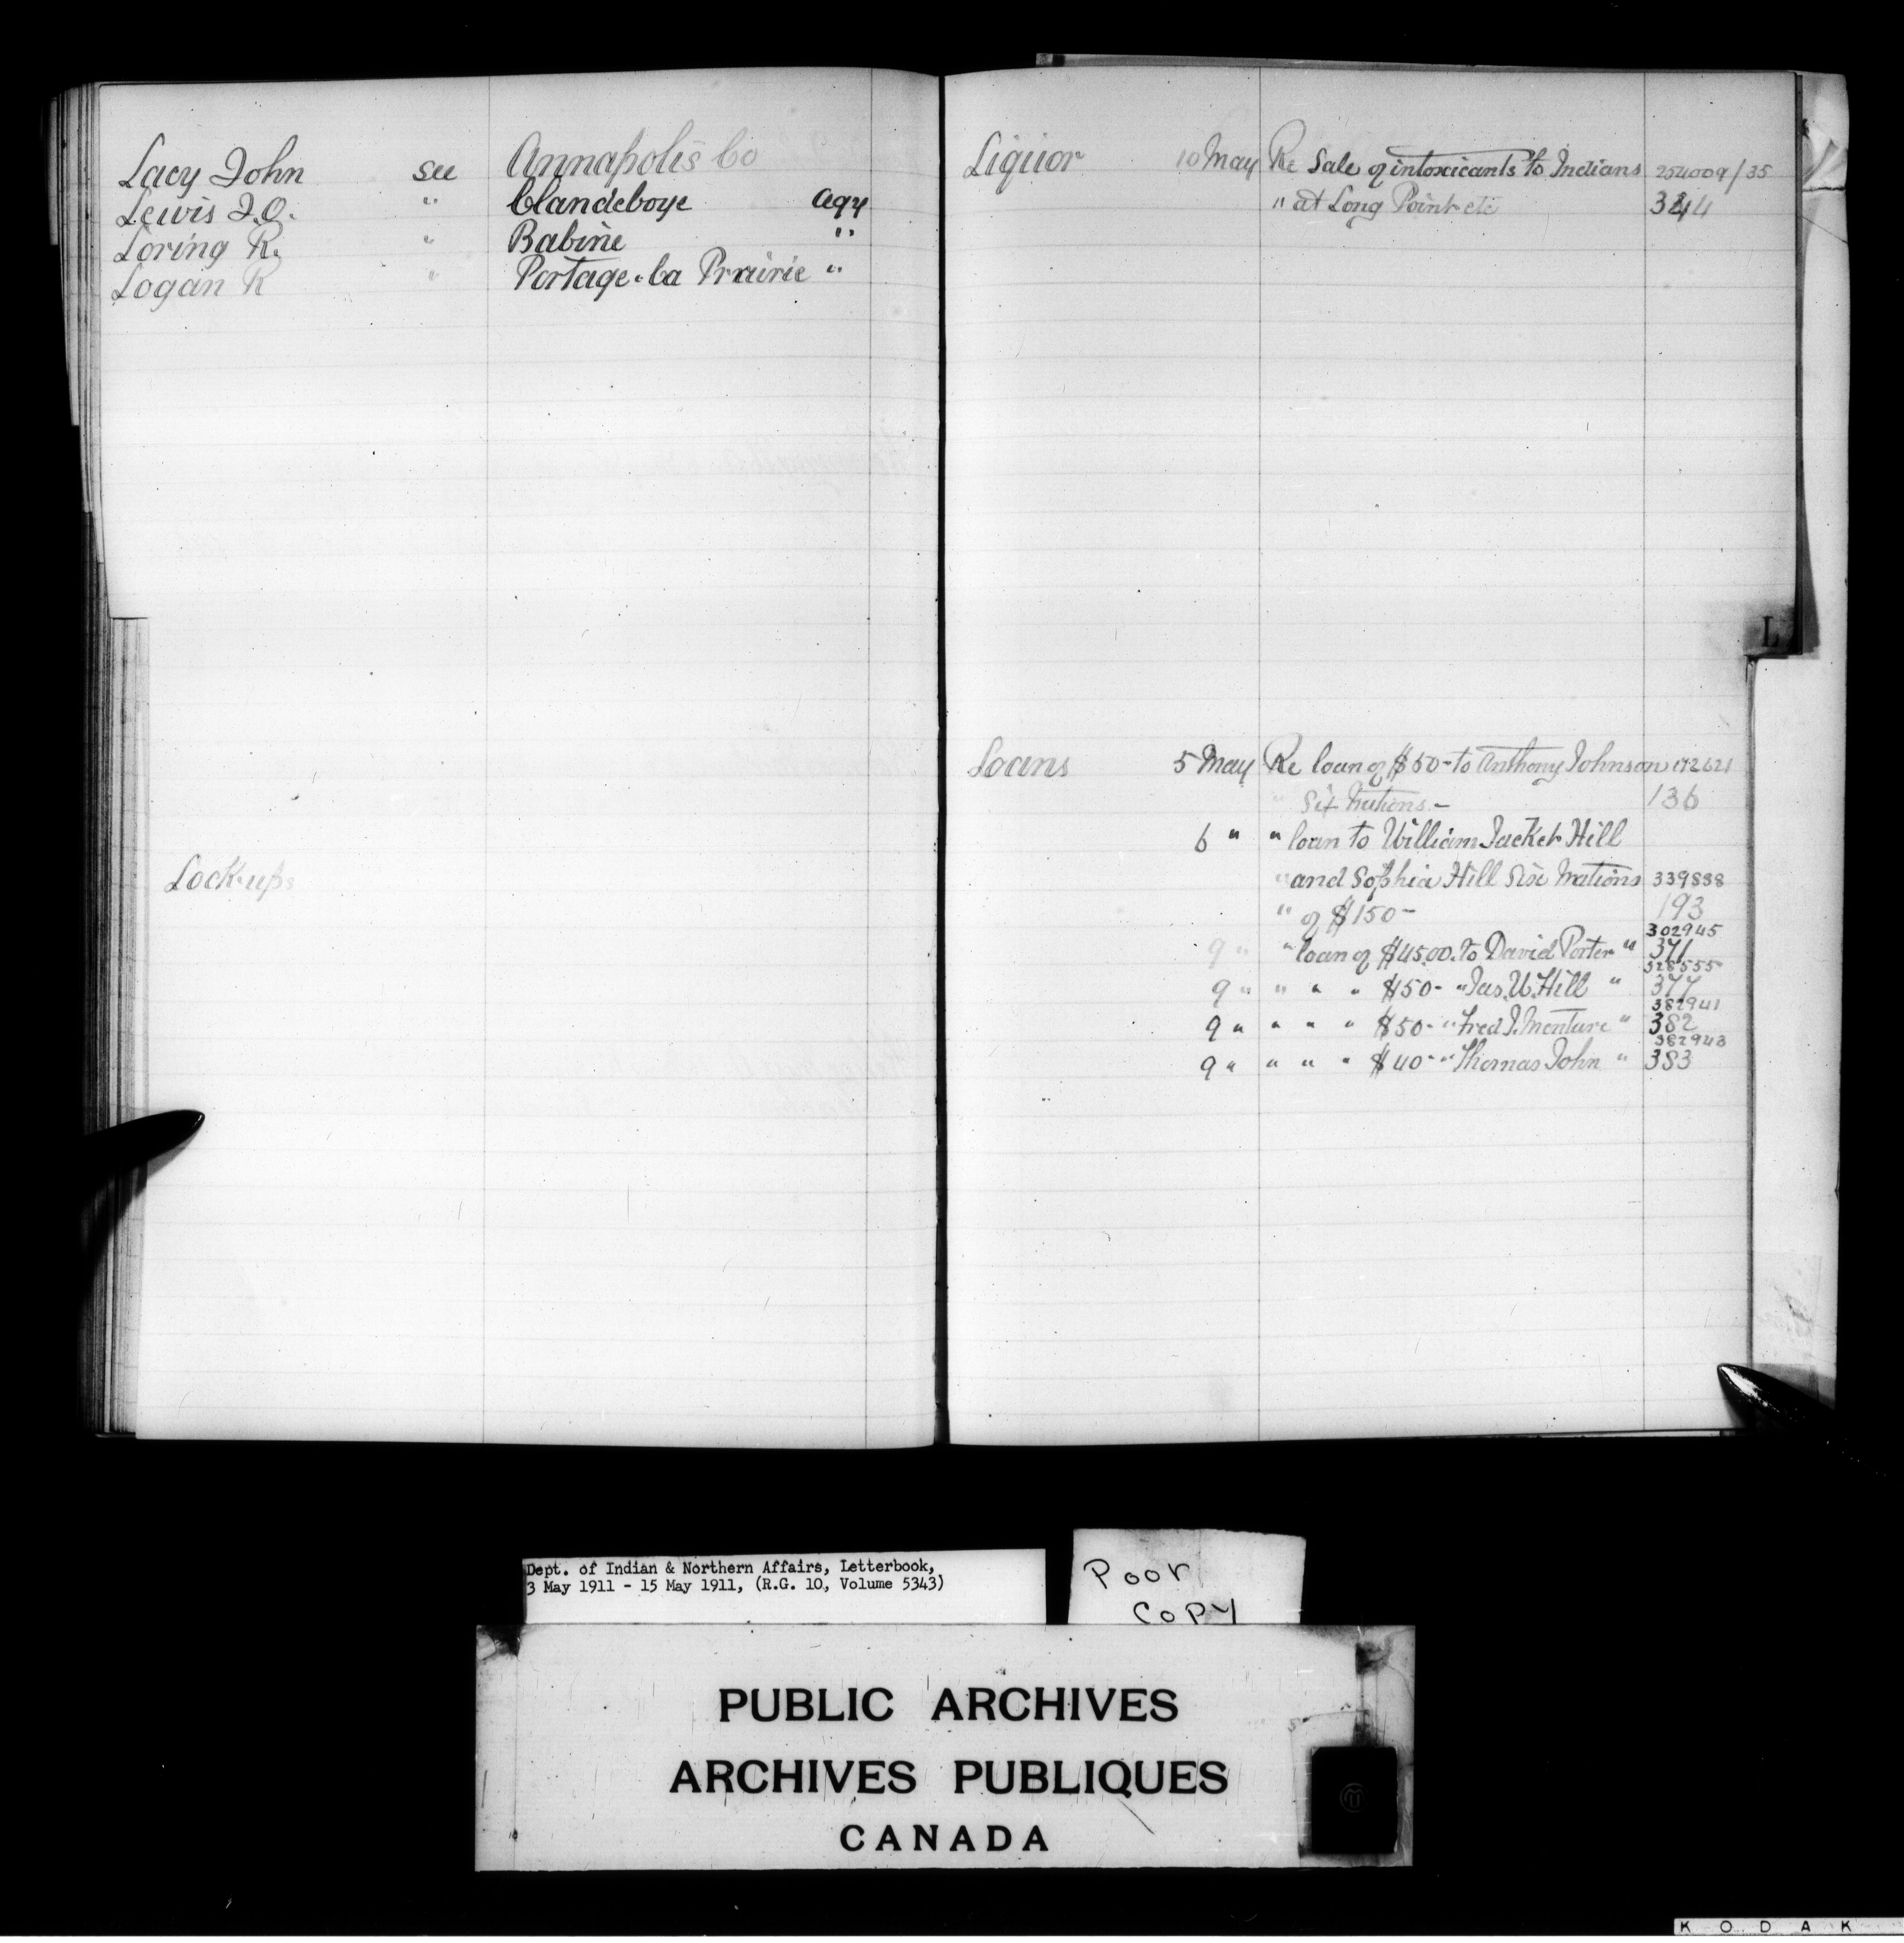 Lacy John see Annapolis Co
Lewis J.O. " Clandeboye Agy
Loring R. " Babine "
Logan R " Portage-La Prairie "
Lock-ups
Liquor 10 May Re Sale of intoxicants to Indians 254009/35
" at Long Point etc 344
L
Loans 5 May Re loan of $50- to Anthony Johnson 172621
" Six Nations - 136
6 " " loan to William Jacket Hill
" and Sophia Hill Six Nations 339838
" of $150- 193
302945
9 " " loan of $45.00 to David Porter " 371
328555
9 " " " " $50- " Jas. W. Hill " 377
382941
9 " " " " $50- " Fred J. Monture " 382
382943
9 " " " " $40- " Thomas John " 383
Dept. of Indian & Northern Affairs, Letterbook,
3 May 1911 - 15 May 1911, (R.G. 10, Volume 5343)
Poor
Copy
PUBLIC ARCHIVES
ARCHIVES PUBLIQUES
CANADA
KODAK